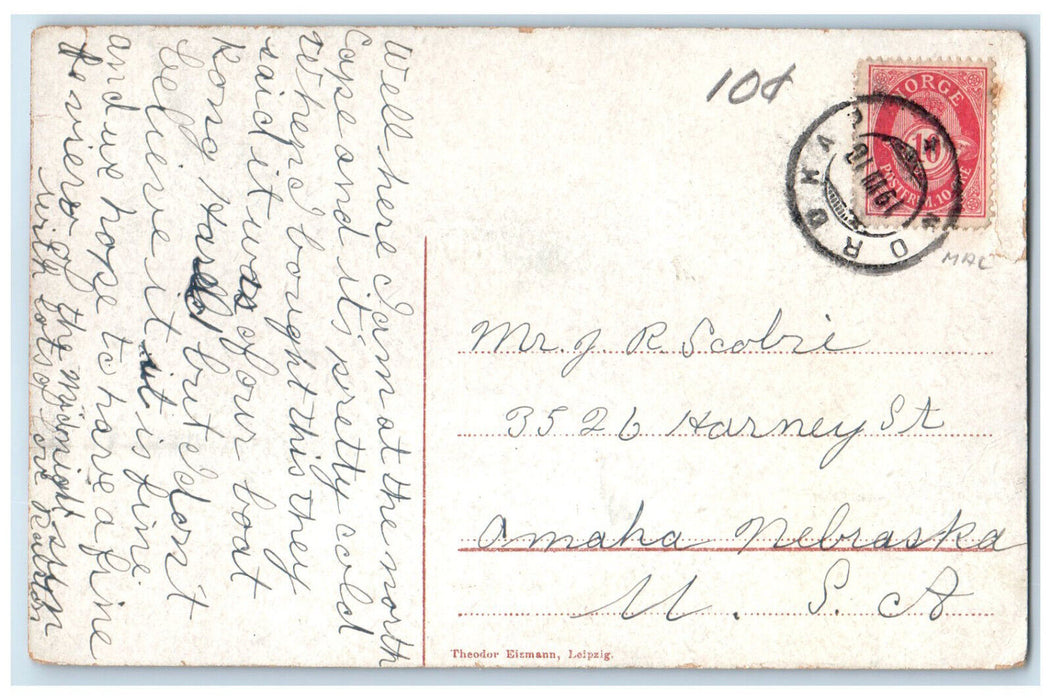 Well here I am at the north
Cape and it's pretty cold
When I bought this they
said it was of our boat
Kong Harald but I don't
believe it. it is fine
and we hope to have a fine
view of the midnight sun
with lots of love
10¢
NORGE
10
POSTFRIM. 10 ØRE
NORDKAP
MAE
Mr. J R. Scobie
3526 Harney St
Omaha Nebraska
U. S. A
Theodor Eizmann, Leipzig.